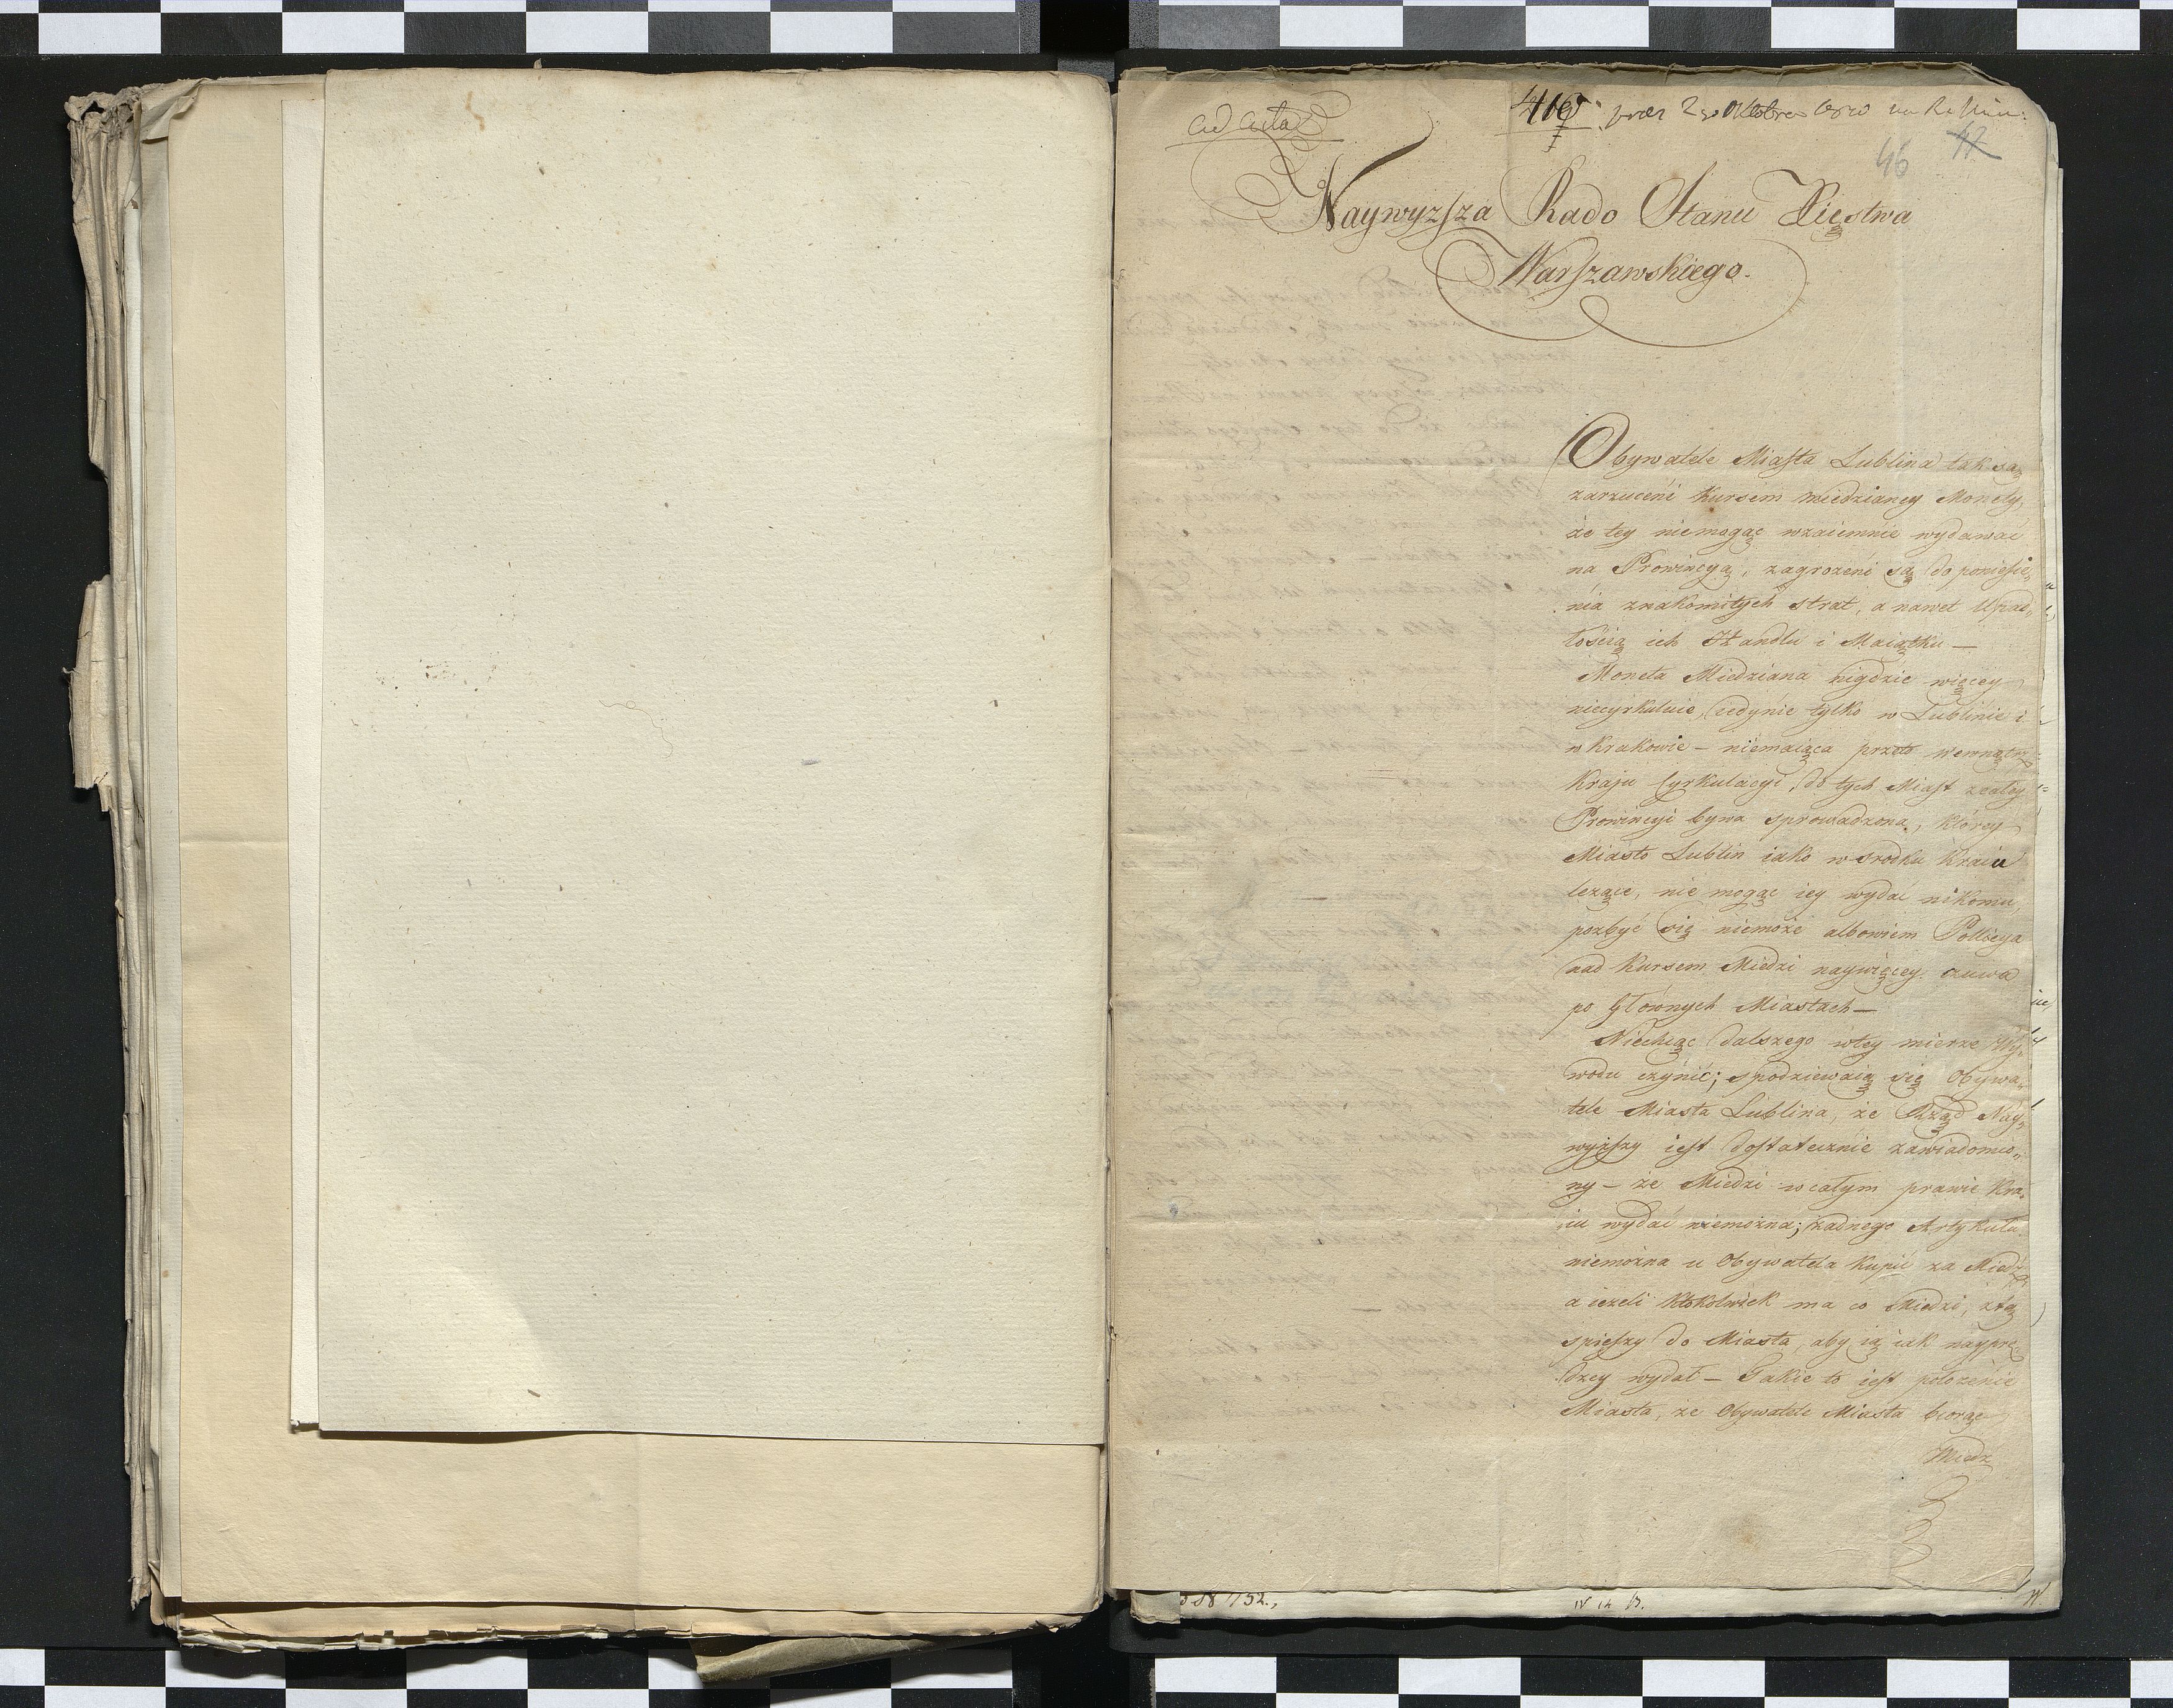 ad acta
416 2go Oktobra 1810
46 47
Naywyzſza Rado Stanu Xięstwa
Warſzawskiego.
Obywatele Miaſta Lublina tak są
zarzuceni Kursem miedzianey Monety,
że tey niemogąc wzaiemnie wydawać
na Prowincyą, zagrożeni są do ponieſie„
nia znakomitych strat, a nawet Upad„
łością ich Handlu i Maiątku —
Moneta Miedziana nigdzie więcey
niecyrkuluie, iedynie tylko w Lublinie i
w Krakowie – niemaiąca przeto wewnątrz
Kraju Cyrkulacyi, do tych Miaſt z całey
Prowincyi bywa sprowadzona, którey
Miasto Lublin iako w srodku Kraiu
leżące, nie mogąc iey wydać nikomu,
pozbyć się niemoże albowiem Policya
nad Kursem Miedzi naywięcey czuwa
po Głownych Miastach —
Niechcąc dalszego wtey mierze Wy„
wodu czynić; spodziewaią się Obywa„
tele Miasta Lublina, że Rząd Nay„
wyżſzy ieſt doſtatecznie zawiadomio„
ny – że Miedzi wcałym prawie Kra„
iu wydać niemożna; żadnego Artykułu
niemożna u Obywatela kupić za Miedź,
a ieżeli ktokolwiek ma co Miedzi, ztą
spieſzy do Miasta, aby ią iak nayprę„
dzey wydał – Takie to ieſt położenie
Miasta, że Obywatele Miasta biorąc
Miedź